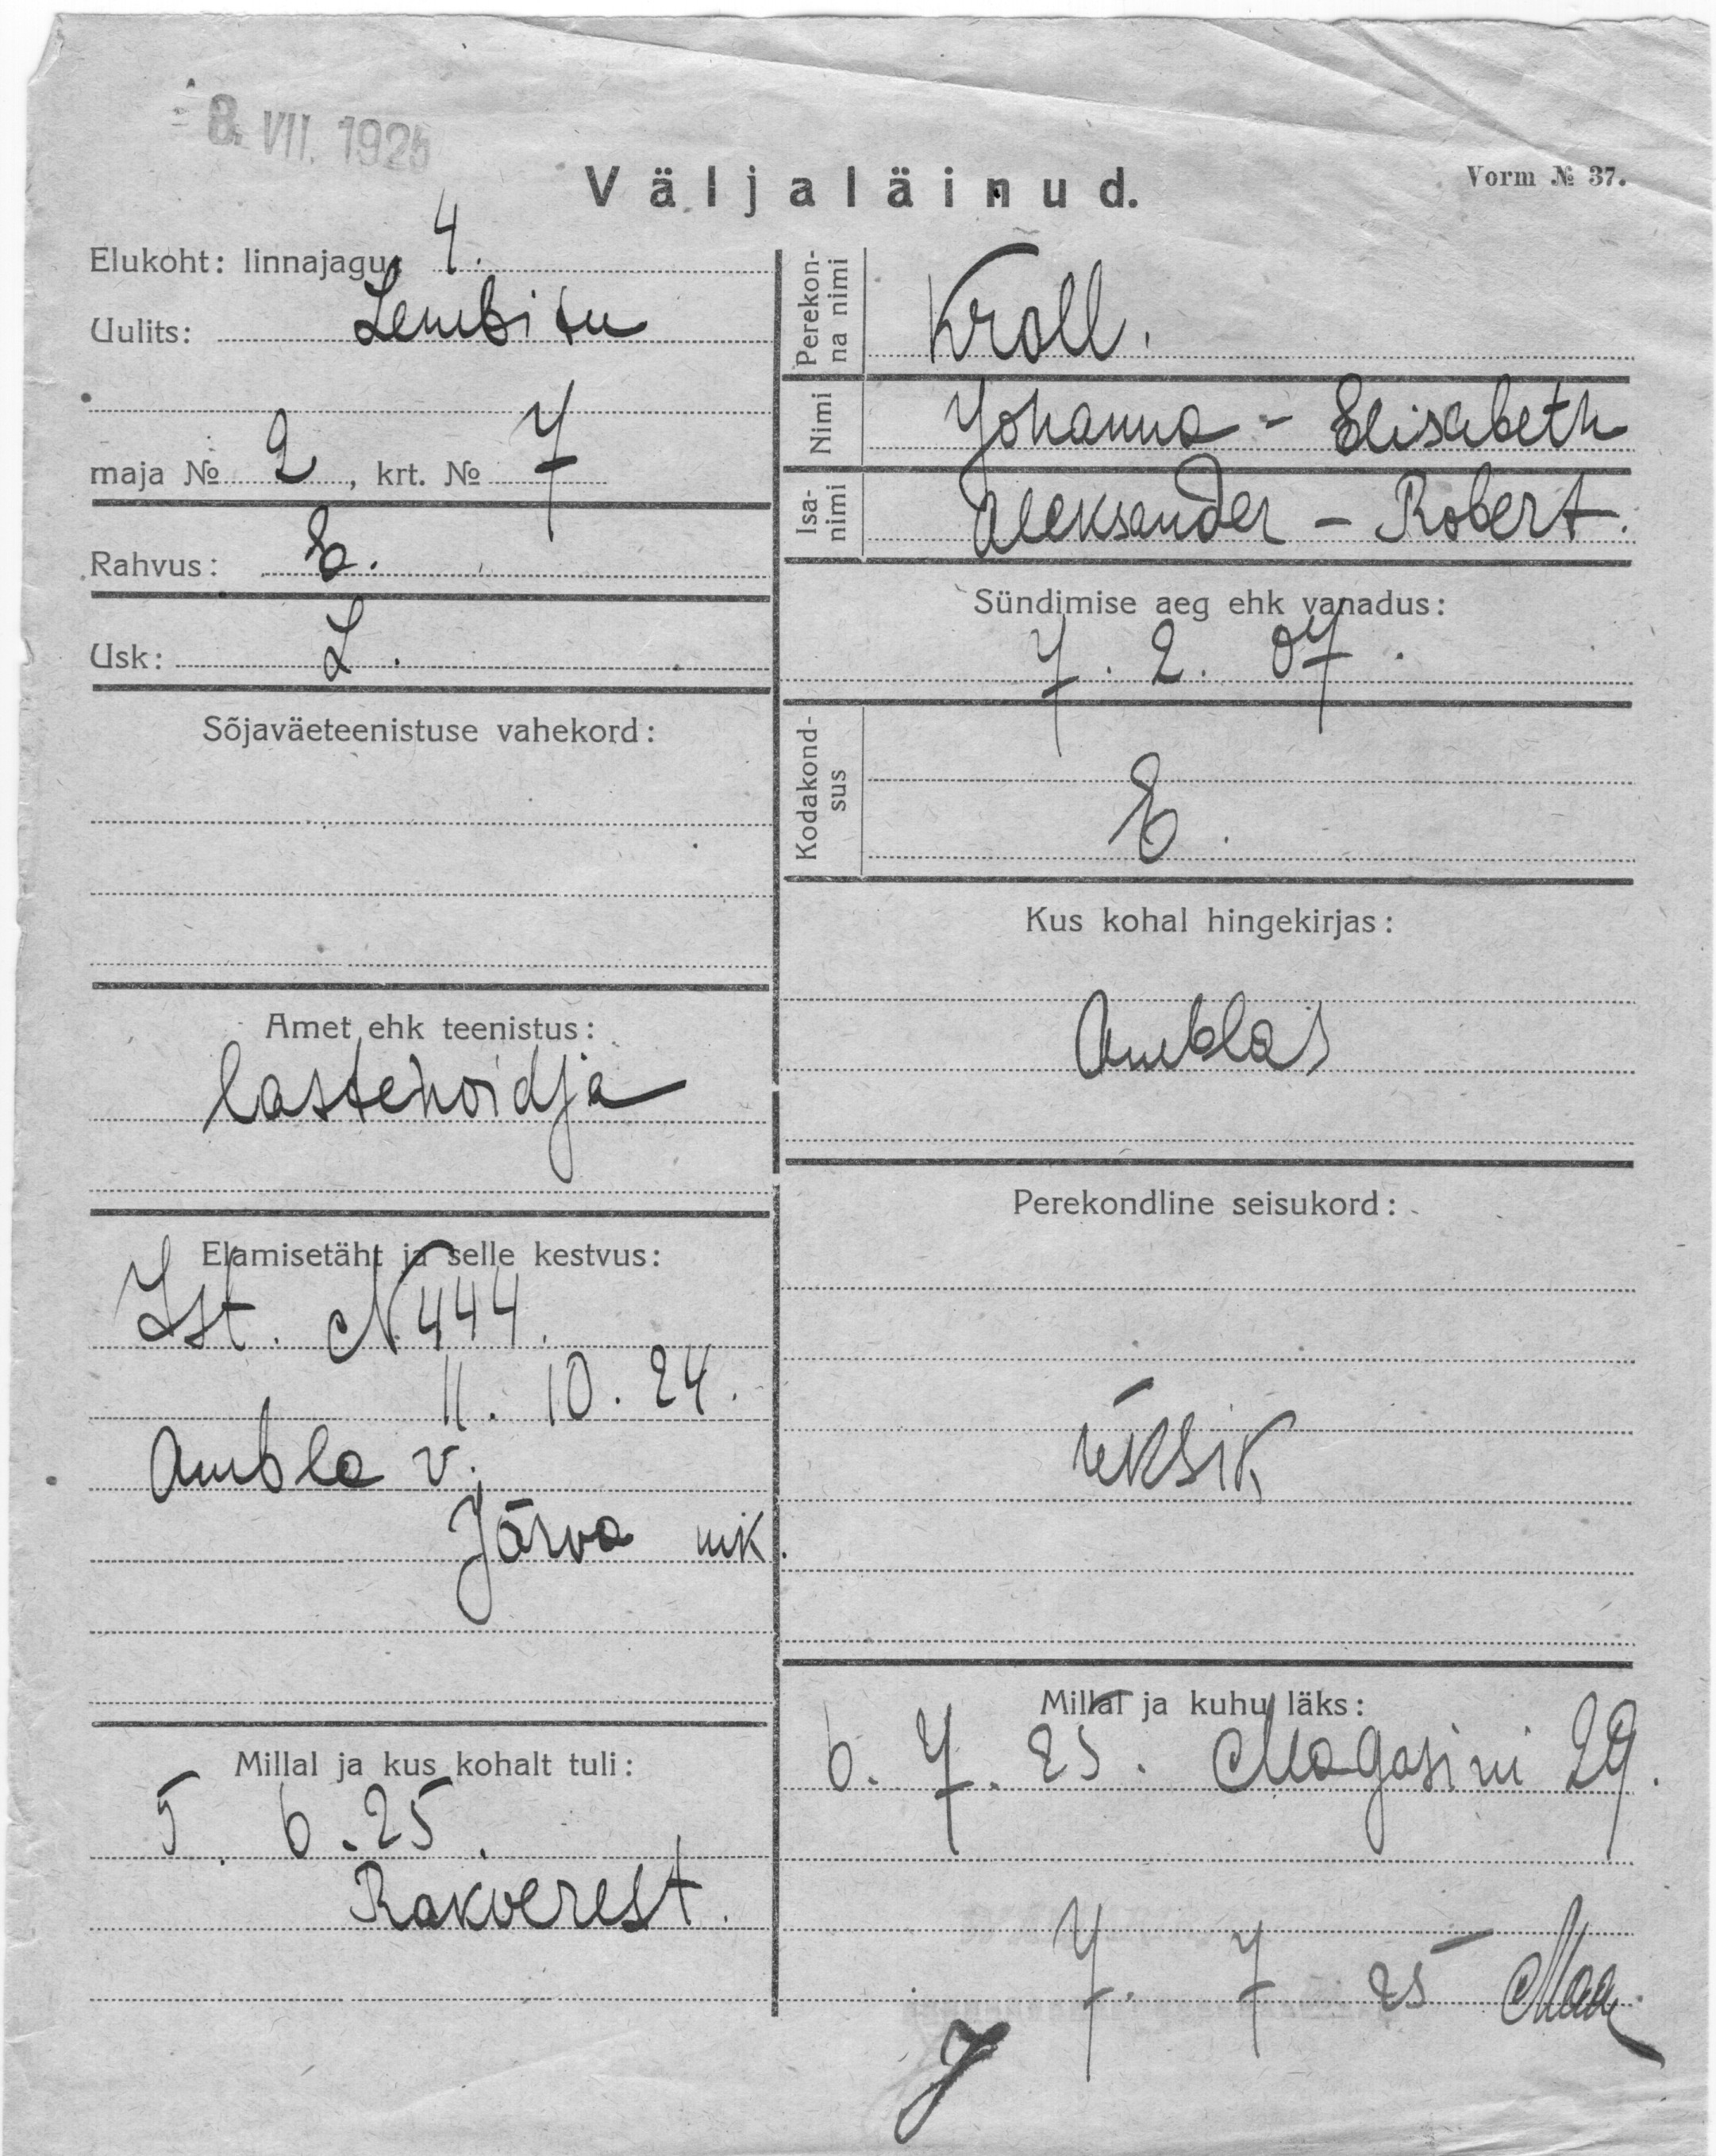 8. VII. 1925
Väljaläinud.
Vorm № 37.
Elukoht: linnajagu: 4.
Uulits: Lembitu
maja № 2, krt. № 7
Rahvus: E.
Usk: L.
Sõjaväeteenistuse vahekord:
Amet ehk teenistus:
lastehoidja
Elamisetäht ja selle kestvus:
Ist. N 444.
11. 10. 24.
Ambla v.
Järva mk.
Millal ja kus kohalt tuli:
5. 6. 25.
Rakverest.
Perekonna nimi
Kroll.
Nimi
Johanna - Elisabeth
Isanimi
Aleksander - Robert.
Sündimise aeg ehk vanadus:
7. 2. 07.
Kodakondsus
E.
Kus kohal hingekirjas:
Amblas
Perekondline seisukord:
üksik
Millal ja kuhu läks:
6. 7. 25. Magasini 29.
7. 7. 25